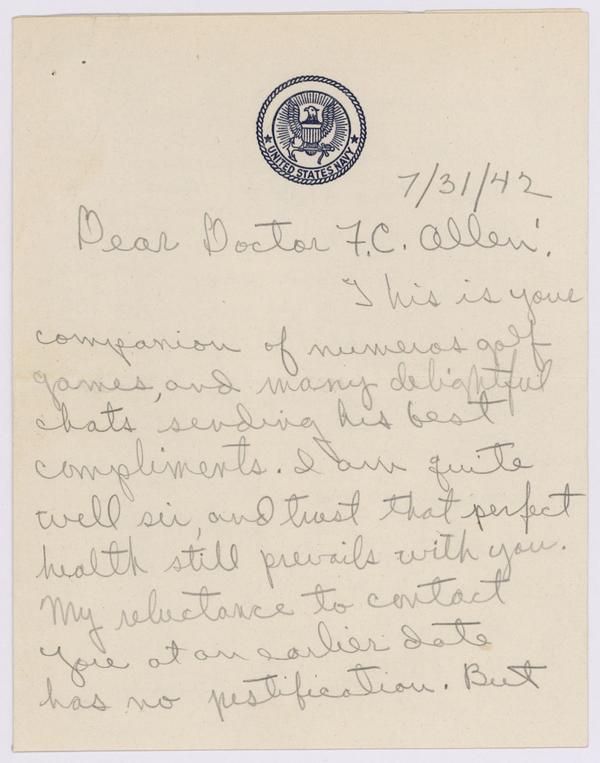 UNITED STATES NAVY
7/31/42
Dear Doctor F.C. Allen:
This is your
companion of numeros golf
games, and many delightful
chats sending his best
compliments. I am quite
well sir, and trust that perfect
health still prevails with you.
My reluctance to contact
you at an earlier date
has no justification. But